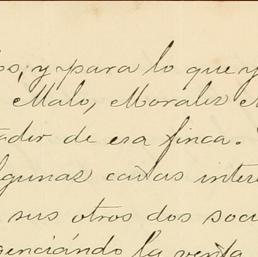 os, y para lo que y
Malo, Morales
ador de esa finca.
lgunas cosas inter
sus otros dos soci
enciándo la venta